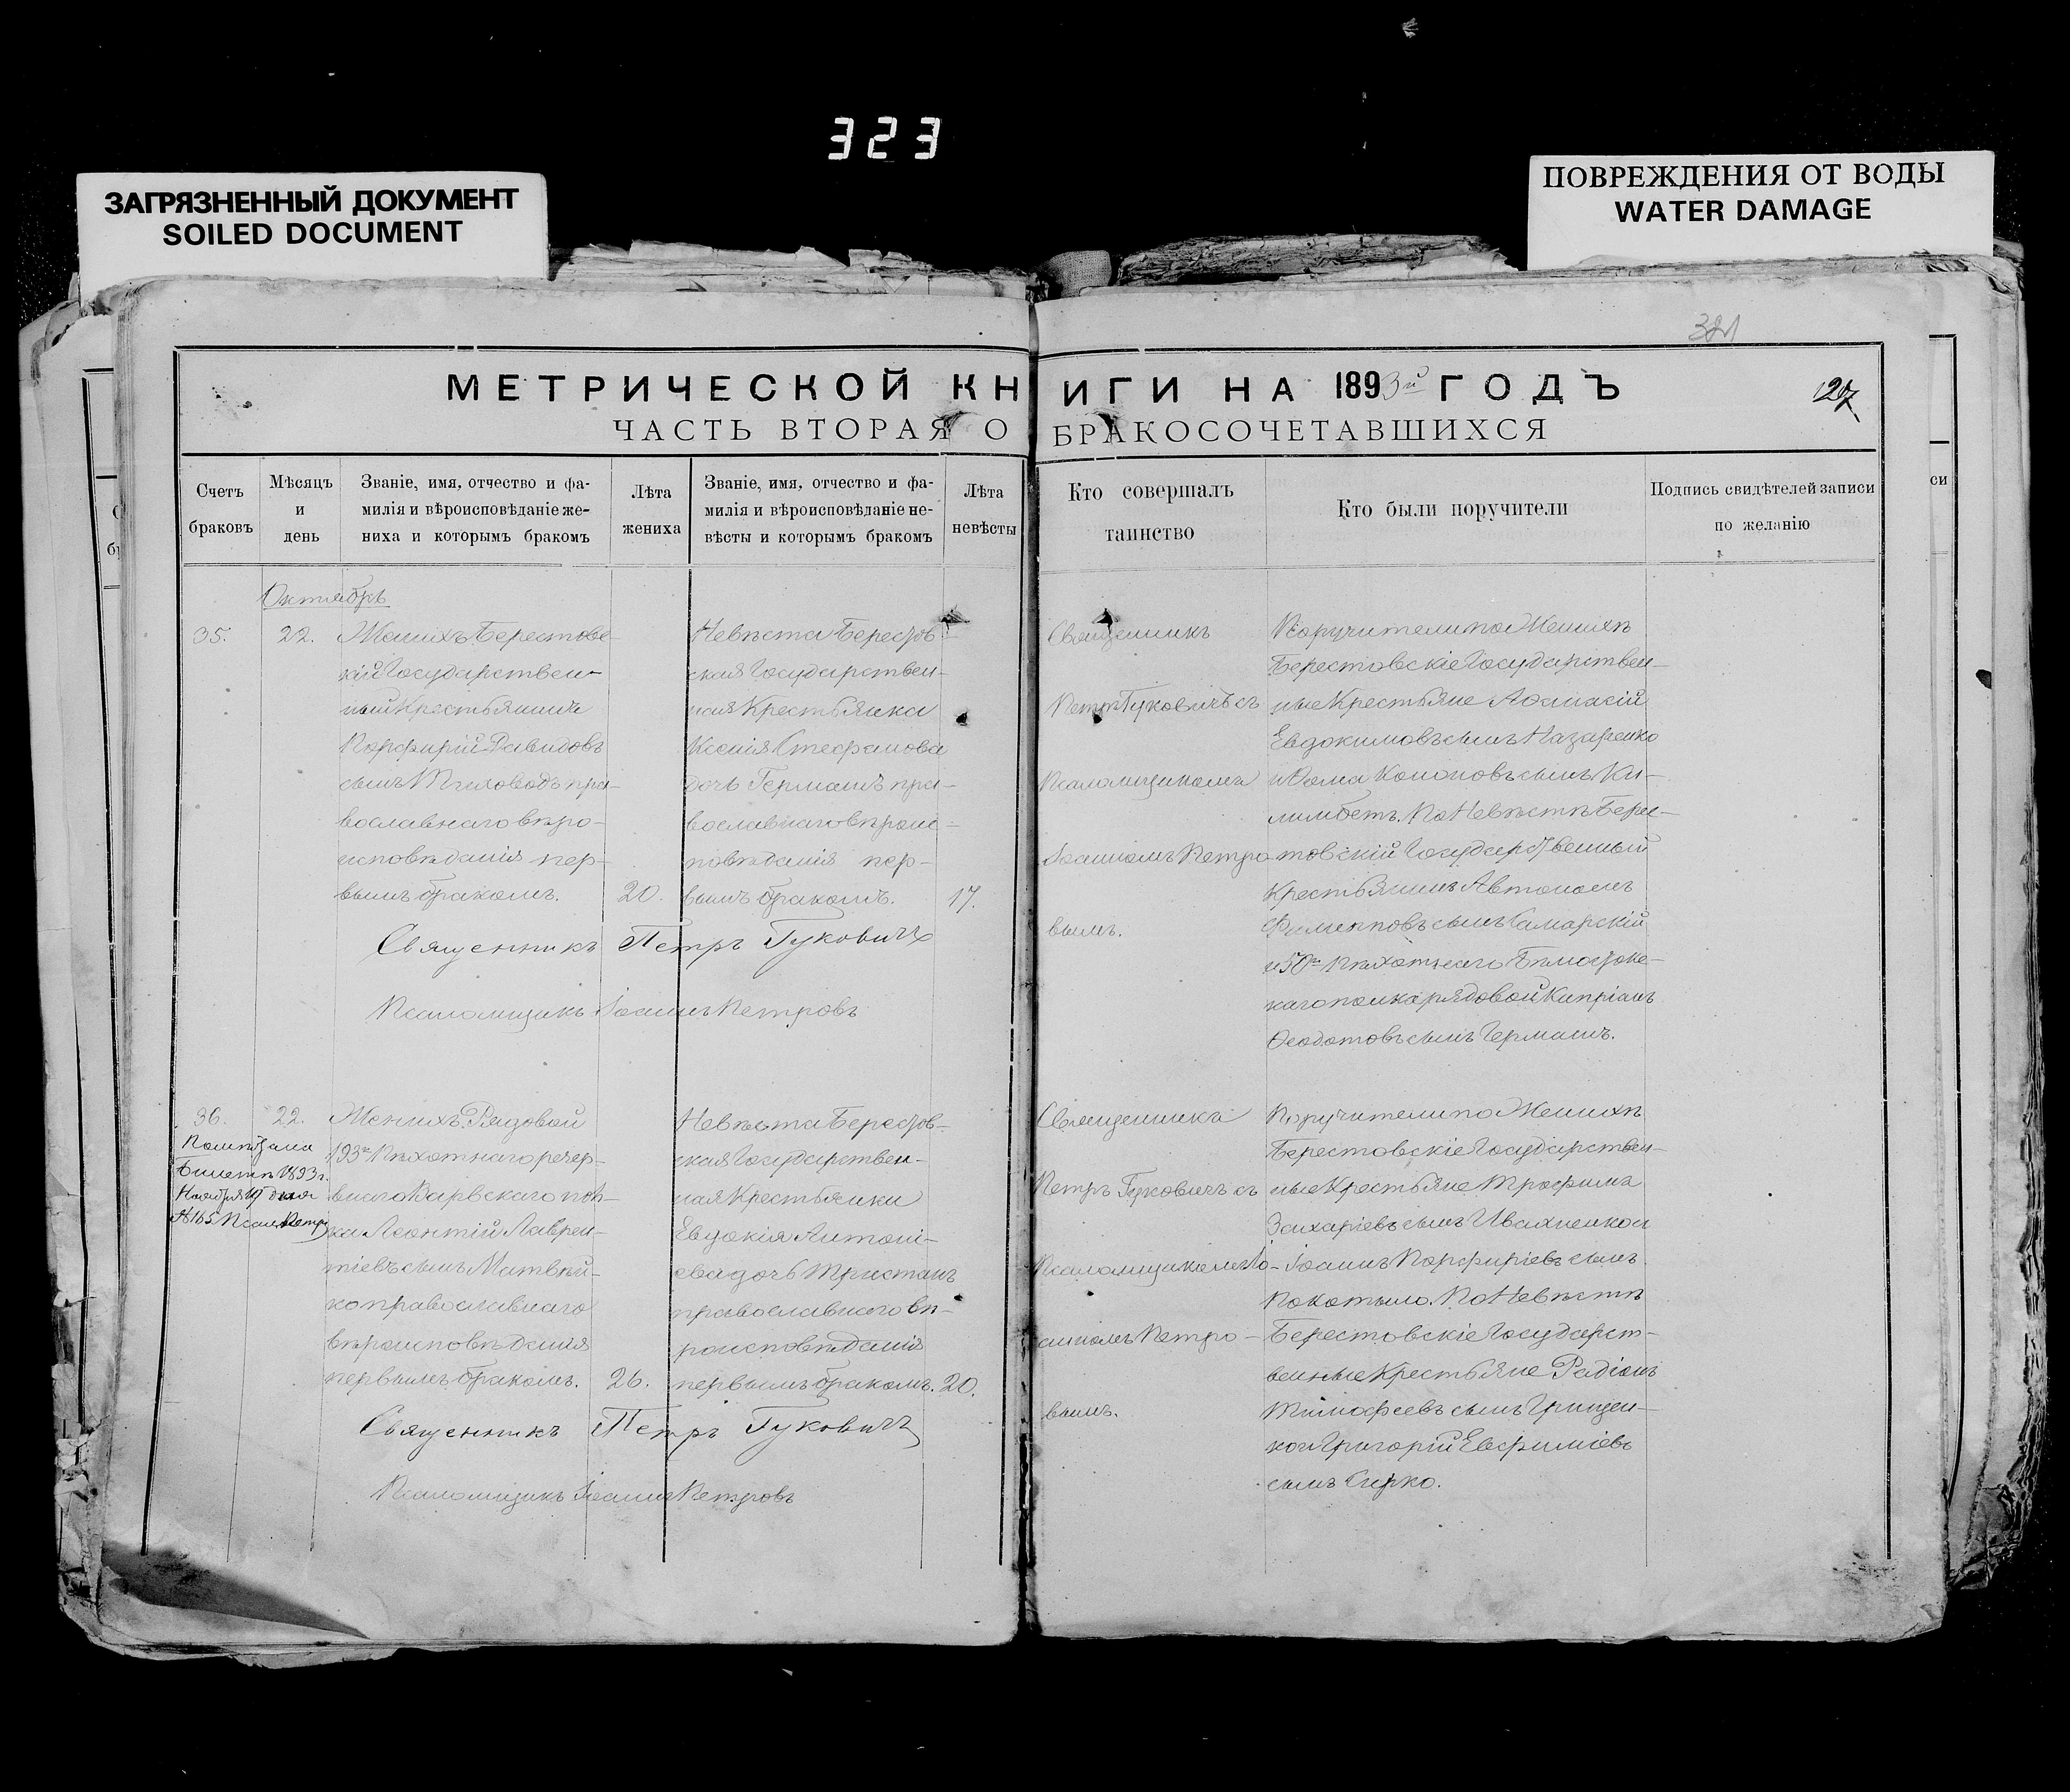 323
ЗАГРЯЗНЕННЫЙ ДОКУМЕНТ
SOILED DOCUMENT
ПОВРЕЖДЕНИЯ ОТ ВОДЫ
WATER DAMAGE
321
МЕТРИЧЕСКОЙ КНИГИ НА 1893й ГОДЪ
127
ЧАСТЬ ВТОРАЯ О БРАКОСОЧЕТАВШИХСЯ
Счетъ
браковъ
Мѣсяцъ
и
день
Званіе, имя, отчество и фа-
милія и вѣроисповѣданіе же-
ниха и которымъ бракомъ
Лѣта
жениха
Званіе, имя, отчество и фа-
милія и вѣроисповѣданіе не-
вѣсты и которымъ бракомъ
Лѣта
невѣсты
Кто совершалъ
таинство
Кто были поручители
Подпись свидѣтелей записи
по желанію
си
Октябрь
35.
22.
Женихъ Берестовс-
кій Государствен-
ный Крестьянинъ
Порфирій Давидовъ
сынъ пра-
вославнаго вѣро-
исповѣданія пер-
вымъ бракомъ.
20.
Невѣста Берестов-
ская Государствен-
ная Крестьянка
Ксенія Стефанова
дочь Германъ пра-
вославнаго вѣроис-
повѣданія пер-
вымъ бракомъ.
17.
Священникъ
Петръ Гуковичъ съ
Псаломщикомъ
Іоанномъ Петро-
вымъ.
Поручители по Женихѣ
Берестовскіе Государствен-
ные Крестьяне Аѳанасій
Евдокимовъ сынъ Назаренко
и Ѳома Кононовъ сынъ Ки-
лимбетъ. По Невѣстѣ Берес-
товскій Государственный
Крестьянинъ Автономъ
Филипповъ сынъ Самарскій
и 50го Пѣхотнаго Бѣлосток-
каго полка рядовой Кипріанъ
Ѳеодотовъ сынъ Германъ.
Священникъ Петръ Гуковичъ
Псаломщикъ Іоаннъ Петровъ
36.
22.
Повѣнчана
Билетъ 1893 г.
Ноября 19 дня
№165 Псал. Петр
Женихъ Рядовой
193го Пѣхотнаго резер-
внаго Варвскаго пол-
ка Леонтій Лаврен-
тіевъ сынъ Матвѣй-
ко православнаго
вѣроисповѣданія
первымъ бракомъ.
26.
Невѣста Берестов-
ская Государствен-
ная Крестьянка
Евдокія Антоні-
ева дочь Тристанъ
православнаго вѣ-
роисповѣданія
первымъ бракомъ.
20.
Священникъ
Петръ Гуковичъ съ
Псаломщикомъ Іо-
анномъ Петро-
вымъ.
Поручители по Женихѣ
Берестовскіе Государствен-
ные Крестьяне Трофимъ
Захаріевъ сынъ Ивахненко и
Іоаннъ Порфиріевъ сынъ
Покотыло. По Невѣстѣ
Берестовскіе Государст-
венные Крестьяне Радіонъ
Тимофеевъ сынъ Гринцен-
ко и Григорій Евфиміевъ
сынъ Сирко.
Священникъ Петръ Гуковичъ
Псаломщикъ Іоаннъ Петровъ